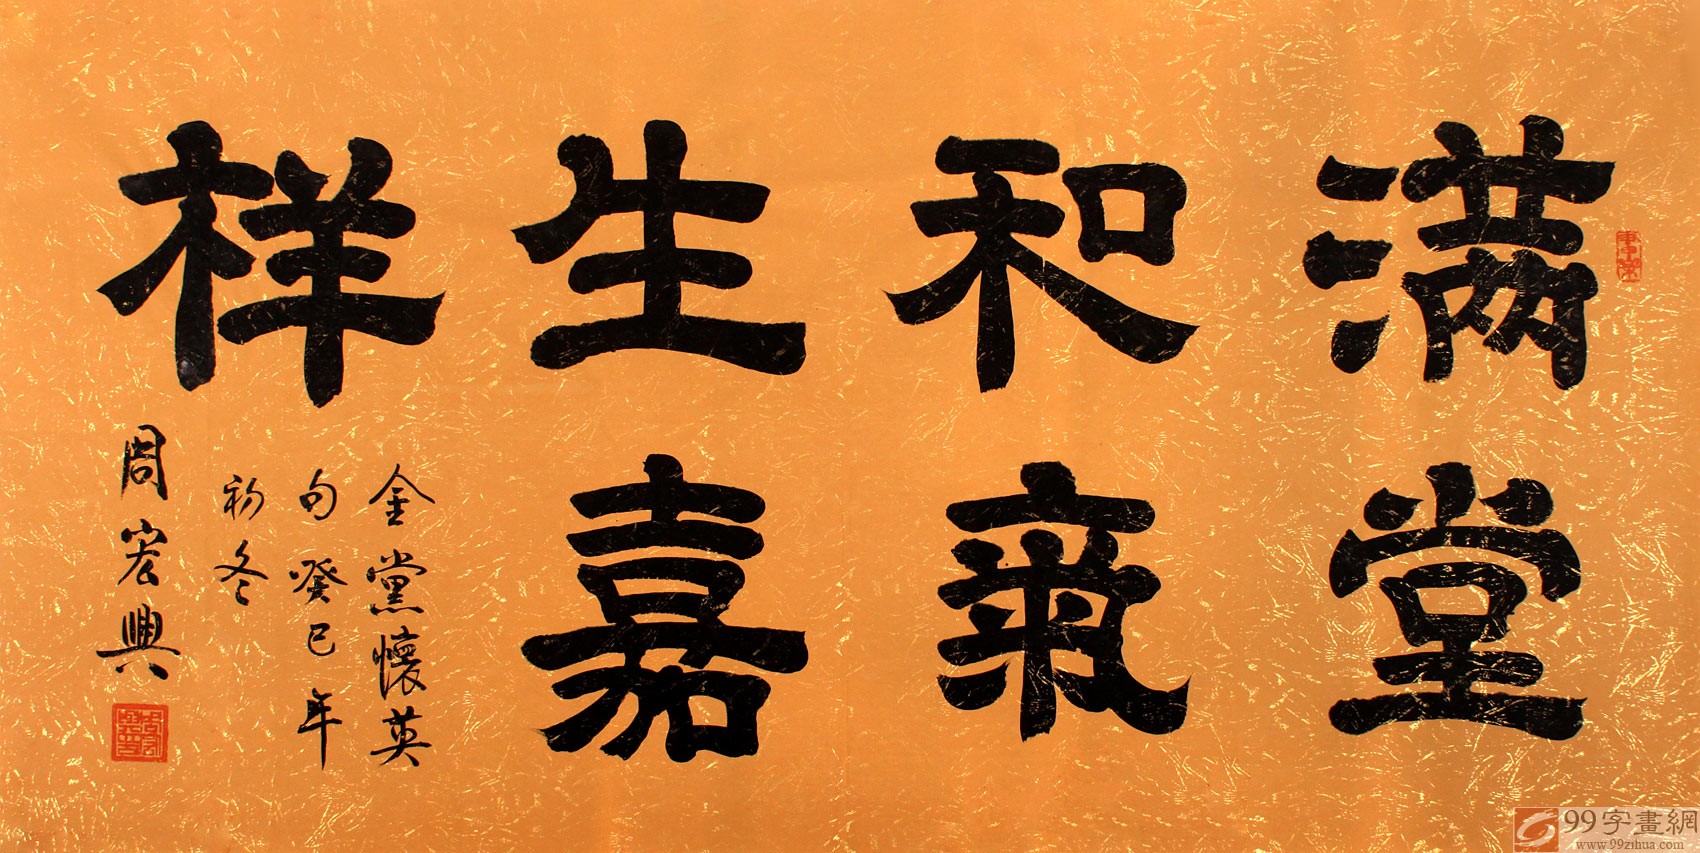 满堂
和氣
生嘉
祥
金黨懷英
句癸巳年
初冬
周宏興
99字畫網
www.99zihua.com